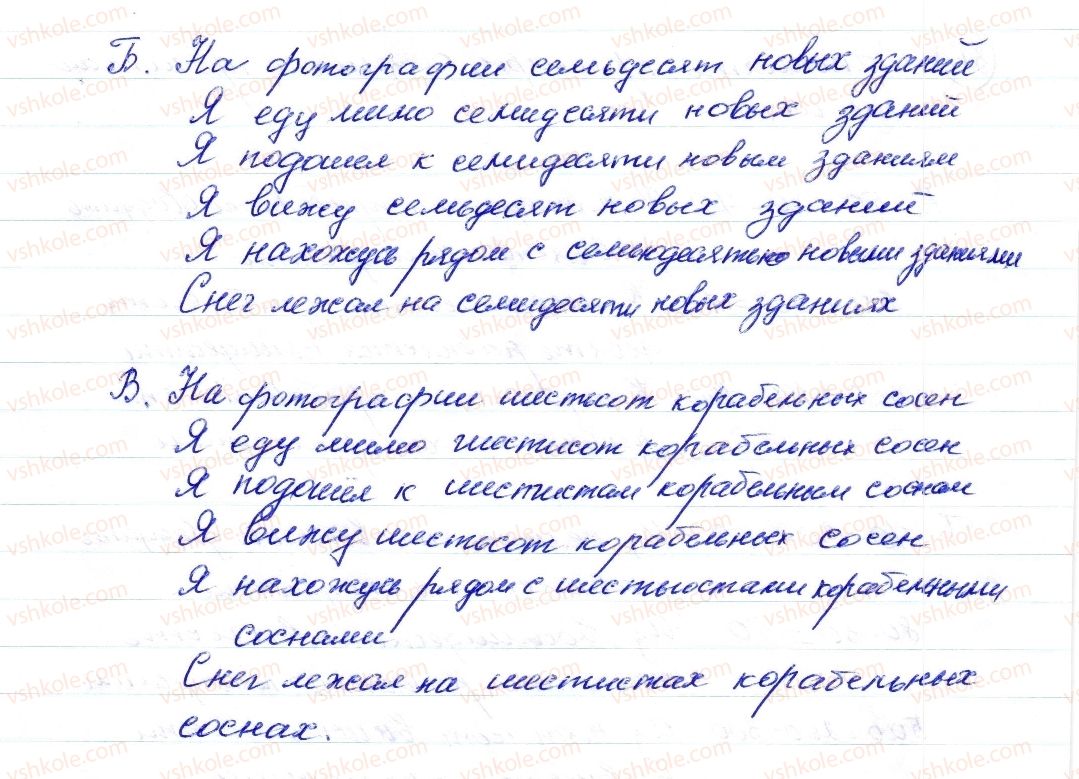 Б. На фотографии семьдесят новых зданий
Я еду мимо семидесяти новых зданий
Я подошел к семидесяти новым зданиям
Я вижу семьдесят новых зданий
Я нахожусь рядом с семьюдесятью новыми зданиями
Снег лежал на семидесяти новых зданиях
В. На фотографии шестьсот корабельных сосен
Я еду мимо шестисот корабельных сосен
Я подошёл к шестистам корабельным соснам
Я вижу шестьсот корабельных сосен
Я нахожусь рядом с шестьюстами корабельными
соснами
Снег лежал на шестистах корабельных
соснах.